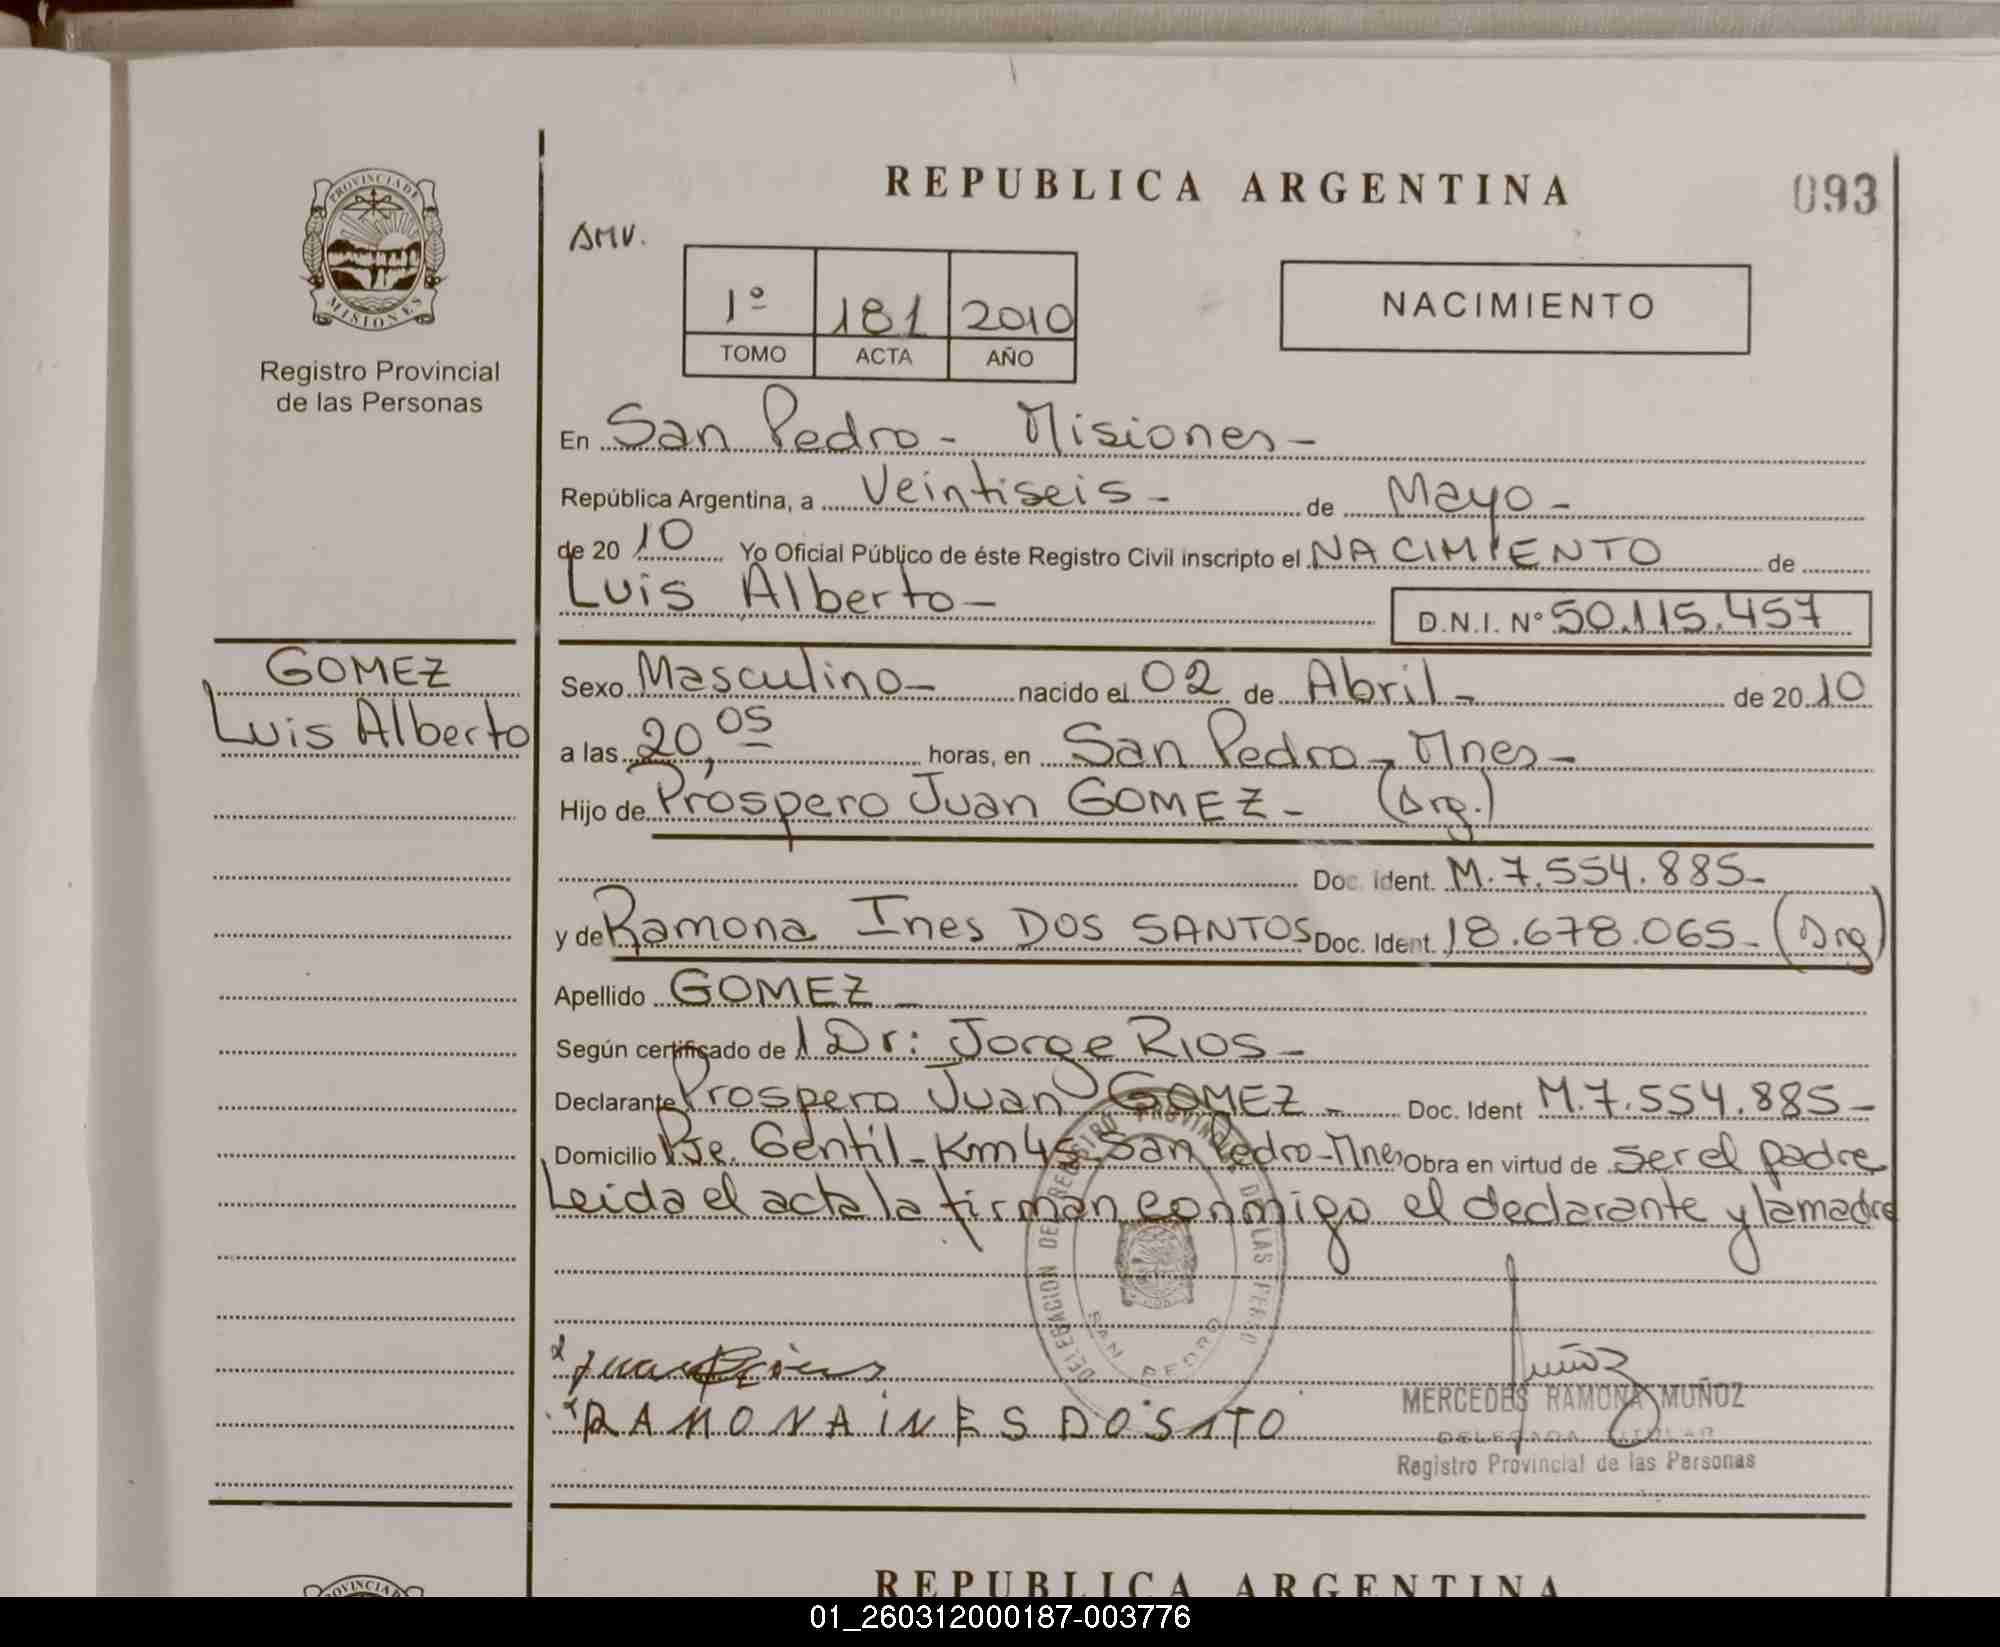 PROVINCIA DE
MISIONES
Registro Provincial
de las Personas
GOMEZ
Luis Alberto
REPUBLICA ARGENTINA
093
AMV.
1º 181 2010
TOMO ACTA AÑO
NACIMIENTO
En San Pedro - Misiones -
República Argentina, a Veintiseis - de Mayo -
de 20 10 Yo Oficial Público de éste Registro Civil inscripto el NACIMIENTO de
Luis Alberto -
D.N.I. Nº 50.115.457
Sexo Masculino - nacido el 02 de Abril - de 20 10
a las 20,05 horas, en San Pedro - Mnes -
Hijo de Prospero Juan GOMEZ - (Arg.)
Doc. Ident. M. 7.554.885 -
y de Ramona Ines DOS SANTOS Doc. Ident. 18.678.065 - (Arg)
Apellido GOMEZ -
Según certificado de 1 Dr: Jorge RIOS -
Declarante Prospero Juan GOMEZ - Doc. Ident M.7.554.885 -
Domicilio Pje. Gentil - Km 45 - San Pedro - Mnes Obra en virtud de ser el padre
Leida el acta la firman conmigo el declarante y la madre
DELEGACION DE REGISTRO PROVINCIAL DE LAS PERSO
SAN PEDRO
RAMONA INES DOSATO
Muñoz
MERCEDES RAMONA MUÑOZ
DELEGADA TITULAR
Registro Provincial de las Personas
REPUBLICA ARGENTINA
01_260312000187-003776